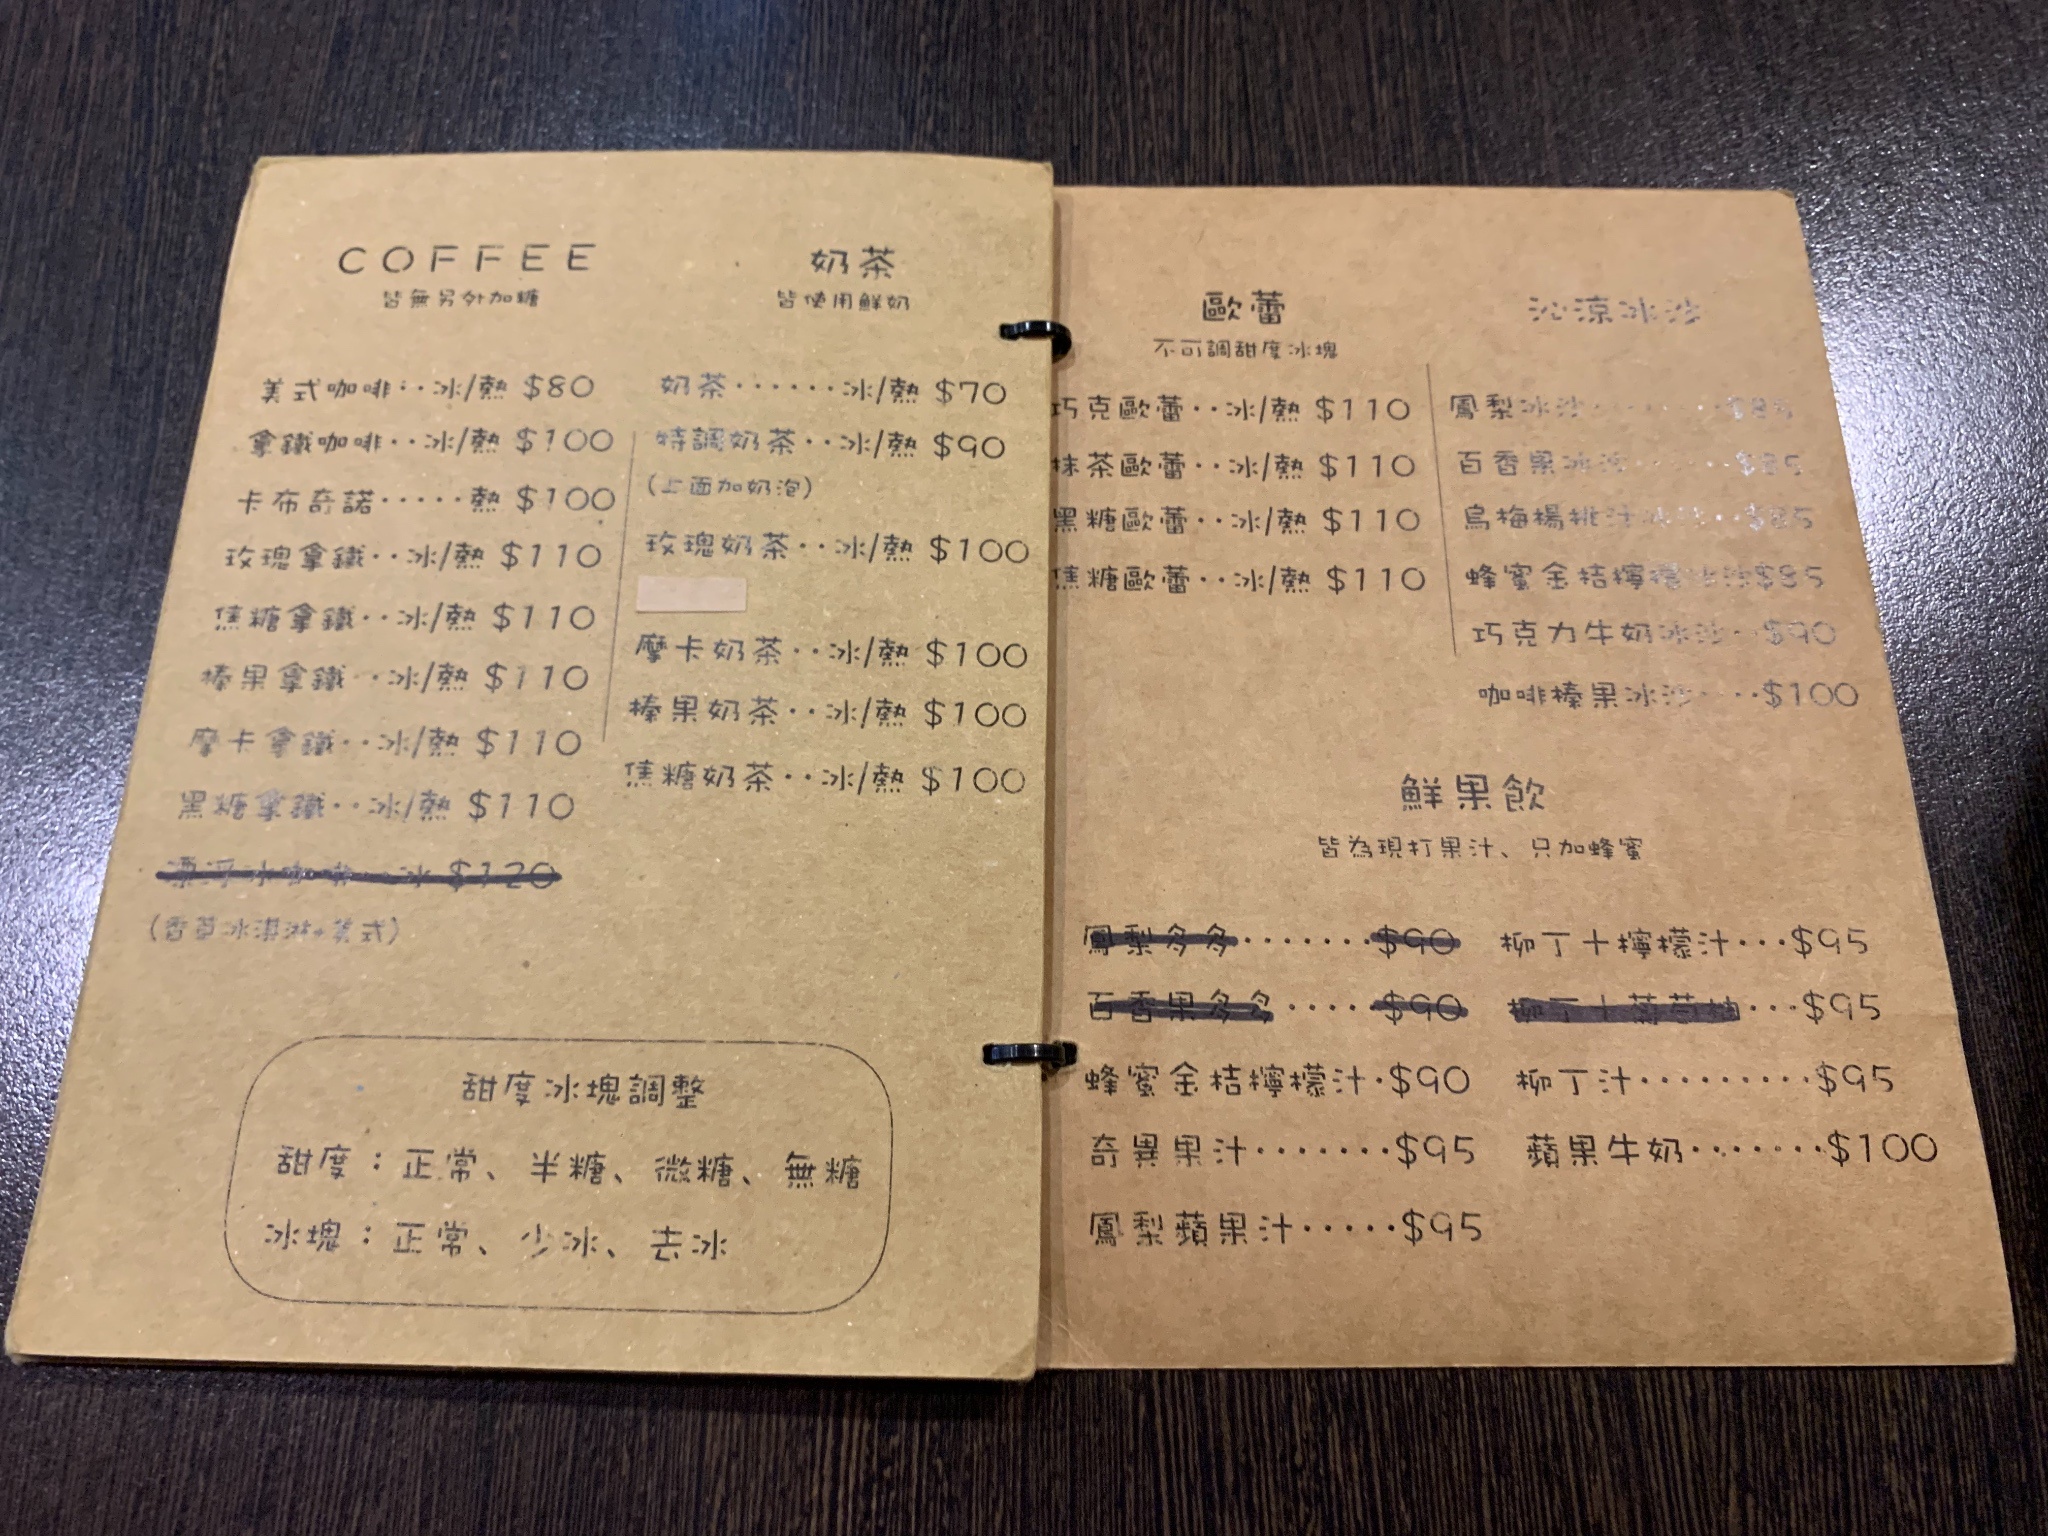 COFFEE
皆無另外加糖
美式咖啡··冰/熱 $80
拿鐵咖啡··冰/熱 $100
卡布奇諾·····熱 $100
玫瑰拿鐵··冰/熱 $110
焦糖拿鐵··冰/熱 $110
榛果拿鐵··冰/熱 $110
摩卡拿鐵··冰/熱 $110
黑糖拿鐵··冰/熱 $110
漂浮冰咖啡··冰 $120
(香草冰淇淋+美式)
奶茶
皆使用鮮奶
奶茶······冰/熱 $70
特調奶茶··冰/熱 $90
(上面加奶泡)
玫瑰奶茶··冰/熱 $100
摩卡奶茶··冰/熱 $100
榛果奶茶··冰/熱 $100
焦糖奶茶··冰/熱 $100
甜度冰塊調整
甜度：正常、半糖、微糖、無糖
冰塊：正常、少冰、去冰
歐蕾
不可調甜度冰塊
巧克歐蕾··冰/熱 $110
抹茶歐蕾··冰/熱 $110
黑糖歐蕾··冰/熱 $110
焦糖歐蕾··冰/熱 $110
沁涼冰沙
鳳梨冰沙·······$85
百香果冰沙·····$85
烏梅楊桃汁冰沙··$85
蜂蜜金桔檸檬冰沙$85
巧克力牛奶冰沙··$90
咖啡榛果冰沙····$100
鮮果飲
皆為現打果汁、只加蜂蜜
鳳梨多多·······$90
百香果多多·····$90
蜂蜜金桔檸檬汁·$90
奇異果汁·······$95
鳳梨蘋果汁·····$95
柳丁＋檸檬汁···$95
柳丁＋葡萄柚···$95
柳丁汁·········$95
蘋果牛奶·······$100